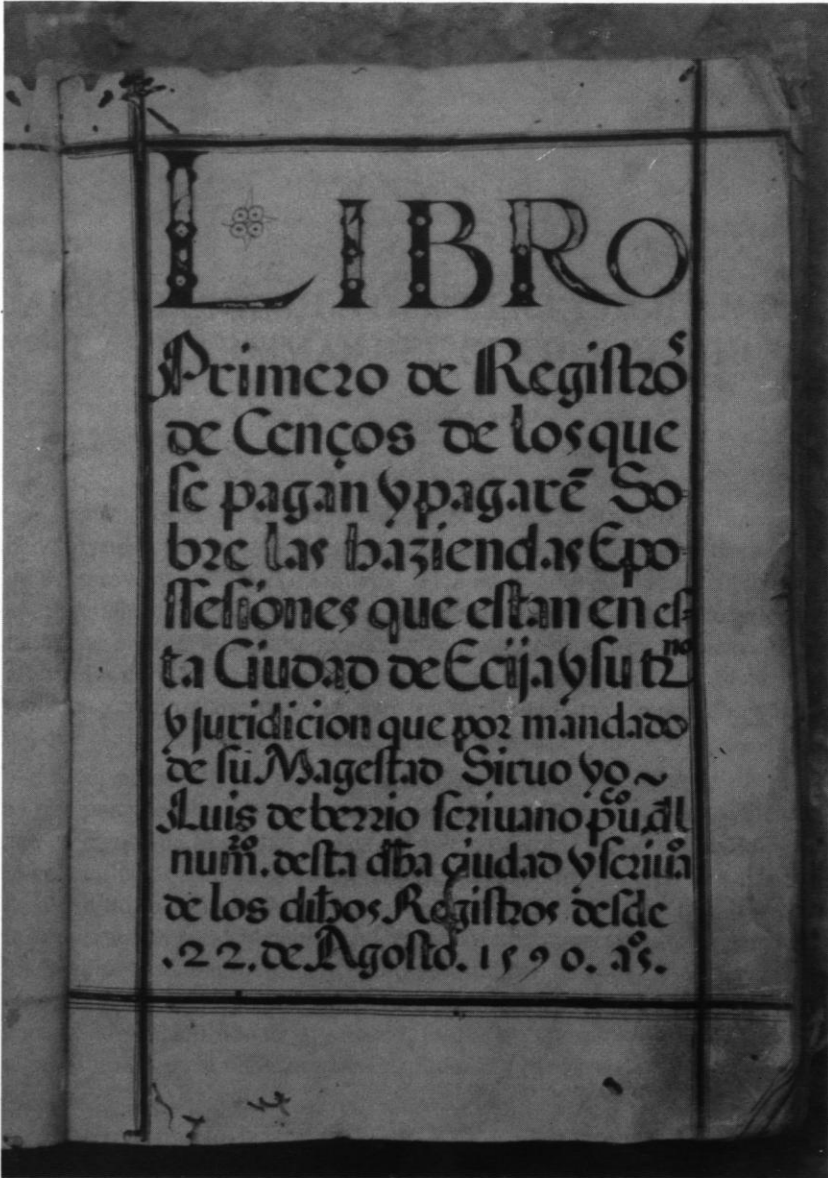 LIBRO
Primero de Registros
de Cenços de los que
se pagan y pagarē So-
bre las haziendas Epo-
ssesiones que estan en es-
ta Ciudad de Ecija y su trno
y juridicion que por mandado
de su Magestad Siruo yo ~
Luis de berrio scriuano puco dl
numro. desta dha ciudad y scriua
de los dihos Registros desde
.22. de Agosto. 1590. aos.